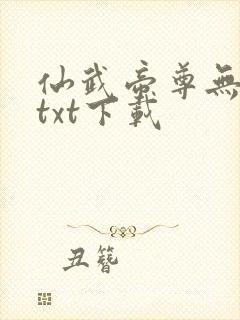 仙武帝尊無
txt下載
丑簪